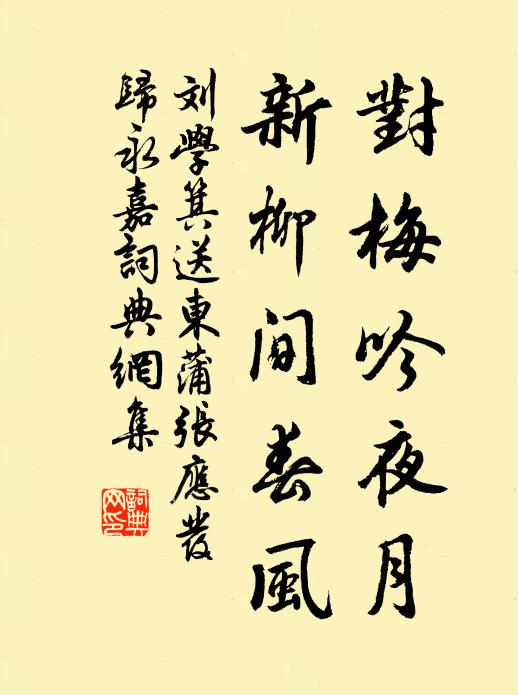 對梅吟夜月
新柳間春風
刘學箕送東蒲張應發
歸永嘉詞典網集
詞典网印